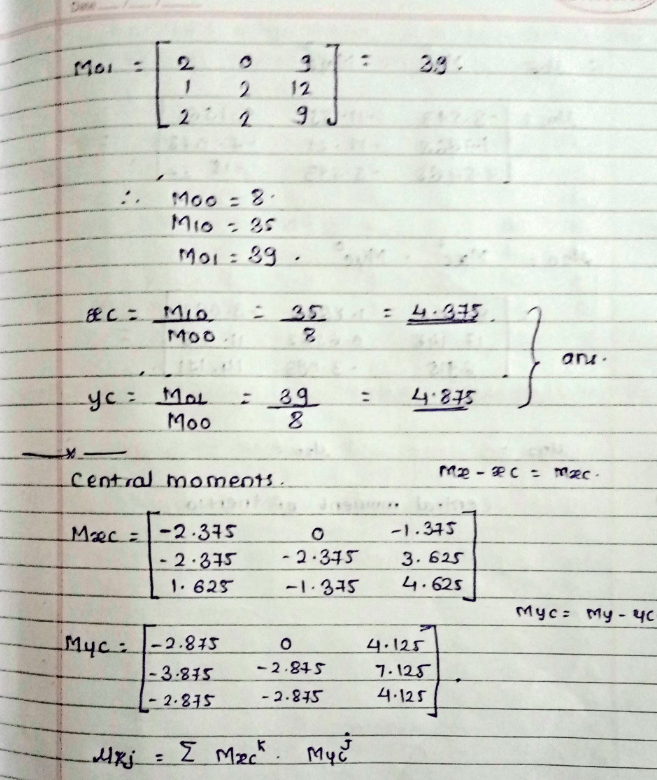 Date
M01 = [ 2 0 9 ] = 39.
1 2 12
2 2 9
∴ M00 = 8.
M10 = 35
M01 = 39.
xc = M10 / M00 = 35 / 8 = 4.375
ans.
yc = M01 / M00 = 39 / 8 = 4.875
Central moments.
Mx - xc = Mxc.
Mxc = [ -2.375 0 -1.375 ]
-2.375 -2.375 3.625
1.625 -1.375 4.625
Myc = My - yc
Myc = [ -2.875 0 4.125 ]
-3.875 -2.875 7.125
-2.875 -2.875 4.125
μkj = Σ Mxc^k . Myc^j